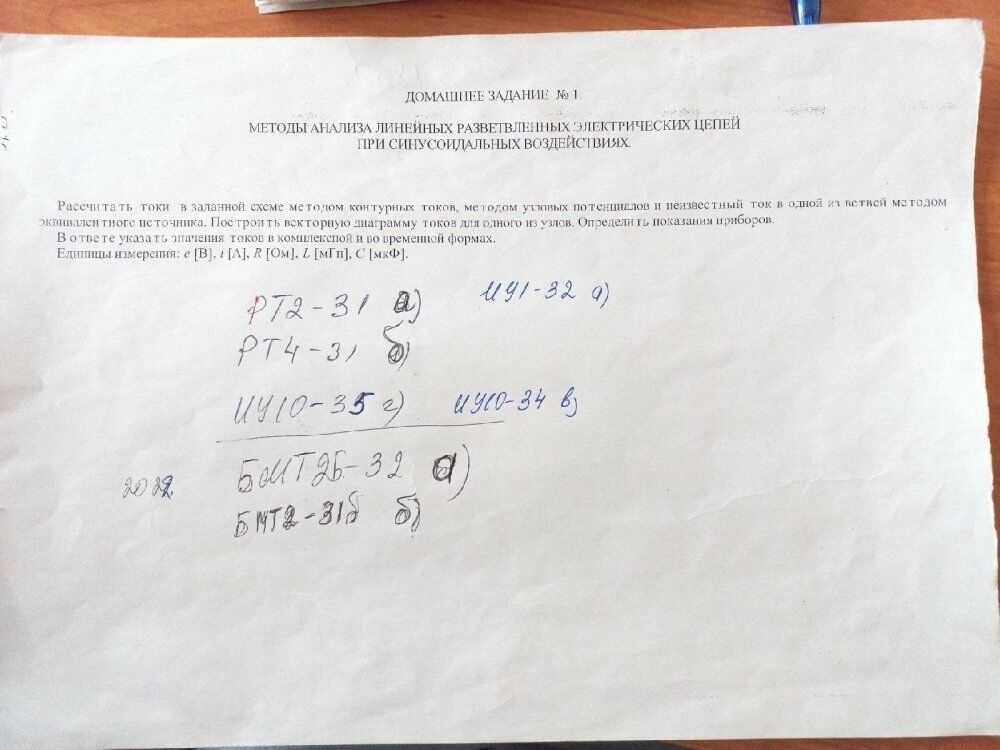 ДОМАШНЕЕ ЗАДАНИЕ № 1.
МЕТОДЫ АНАЛИЗА ЛИНЕЙНЫХ РАЗВЕТВЛЕННЫХ ЭЛЕКТРИЧЕСКИХ ЦЕПЕЙ
ПРИ СИНУСОИДАЛЬНЫХ ВОЗДЕЙСТВИЯХ.
Рассчитать токи в заданной схеме методом контурных токов, методом узловых потенциалов и неизвестный ток в одной из ветвей методом
эквивалентного источника. Построить векторную диаграмму токов для одного из узлов. Определить показания приборов.
В ответе указать значения токов в комплексной и во временной формах.
Единицы измерения: e [В], i [А], R [Ом], L [мГн], C [мкФ].
РТ2-31 а) ИУ1-32 а)
РТ4-31 б)
ИУ10-35 г) ИУ10-34 в)
БМТ2Б-32 а)
2022.
БМТ2-31б б)